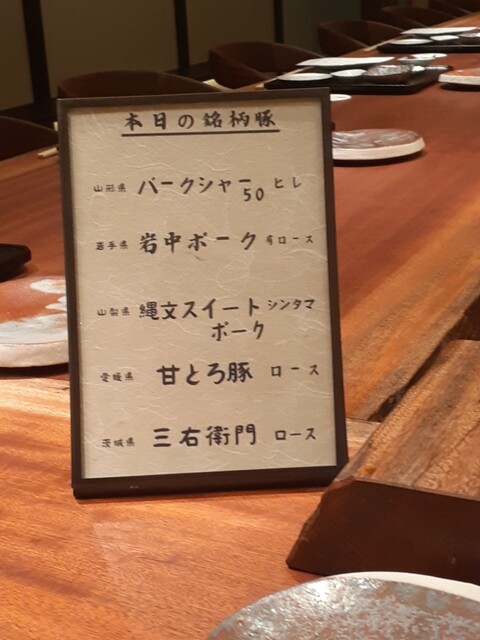 本日の銘柄豚
山形県 バークシャー ヒレ
50
岩手県 岩中ポーク 肩ロース
山梨県 縄文スイート シンタマ
ポーク
愛媛県 甘とろ豚 ロース
茨城県 三右衛門 ロース